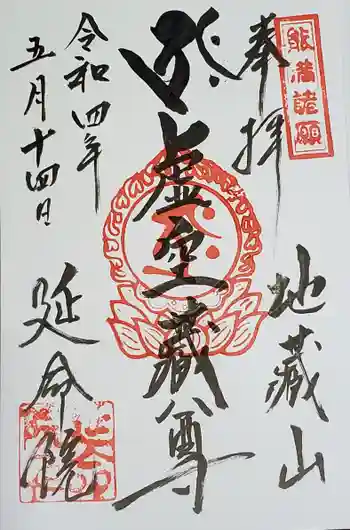 奉拝
能満諸願
地蔵山
虚空蔵尊
令和四年
五月十四日
延命院